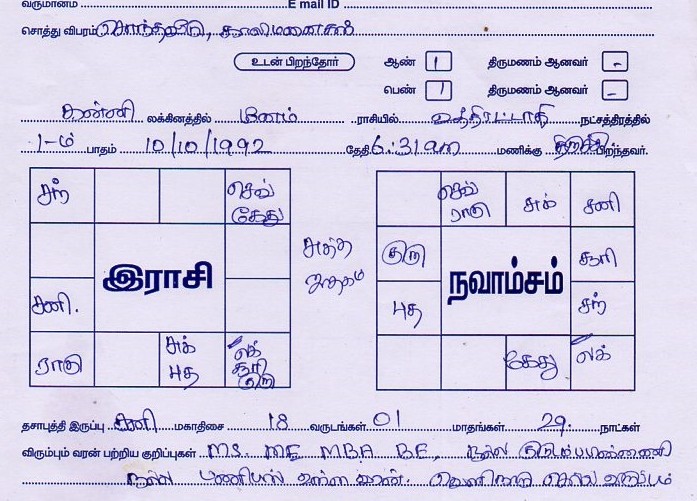 வருமானம் E mail ID
சொத்து விபரம் சொந்தவீடு, காலிமனைகள்
உடன் பிறந்தோர் ஆண் 1 திருமணம் ஆனவர் -
பெண் 1 திருமணம் ஆனவர் -
கன்னி லக்கினத்தில் மீனம் ராசியில் உத்திரட்டாதி நட்சத்திரத்தில்
1-ம் பாதம் 10/10/1992 தேதி 6:31am மணிக்கு பிறந்தவர்.
சந் செவ் கேது
இராசி
சனி.
ராகு சுக் புத லக் சூரி குரு
சுத்த ஜாதகம்
செவ் ராகு சுக் சனி
குரு சூரி
நவாம்சம்
புத சந்
கேது லக்
தசாபுத்தி இருப்பு சனி மகாதிசை 18 வருடங்கள் 01 மாதங்கள் 29. நாட்கள்
விரும்பும் வரன் பற்றிய குறிப்புகள் MS. ME MBA BE, நல்ல
நல்ல பணியில் உள்ள வரன். வெளிநாடு செல்ல விருப்பம்